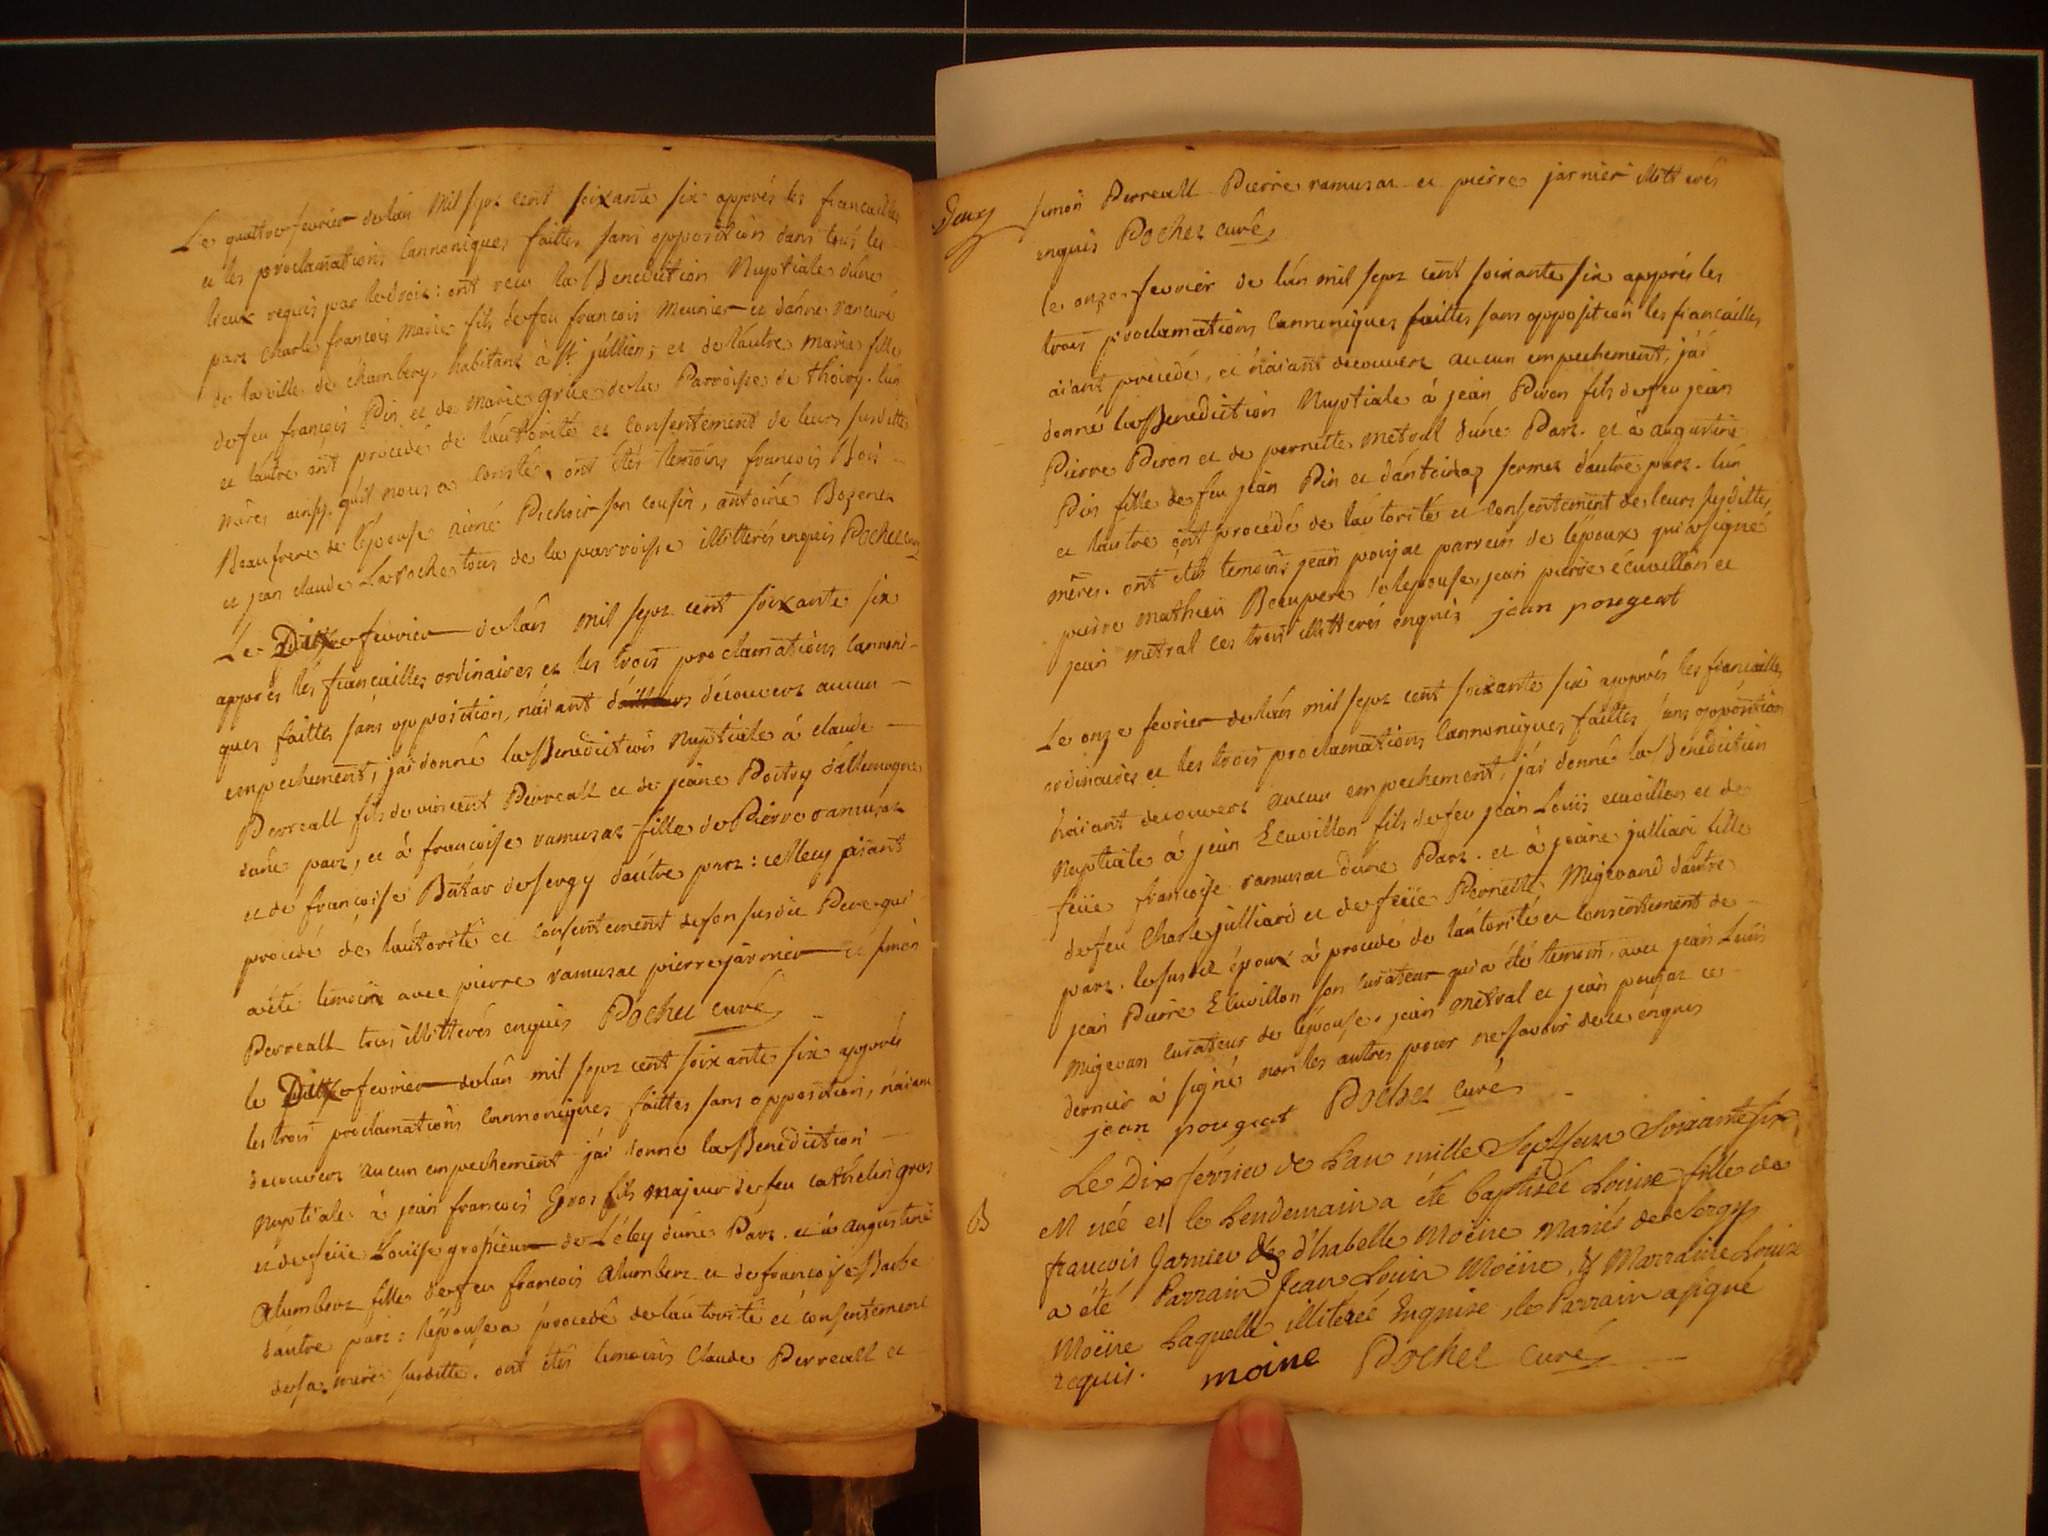 Le quattre fevrier de lán Mil sept cent soixante six apprés les fiancailles
et les proclamations cannoniques faittes sans opposition dans tous les
lieux requis par le droit: ont recu la Benediction Nuptiale dúne
part Charle francois marie fils de feu francois Meunier et dánne rancuré
de la ville de chambery, habitant à St. jullien; et deláutre marie fille
de feu françois Pin et de Marie grilie de la Parroisse de Thoiry. lún
et láutre ont procedé de láutorité et consentement de leurs susdittes
mères ainsy qúil nous a consté, ont étés temoins francois Bois
Beaufrere de lépouse aimé Pichoir son cousin, antoiné Bozenet
et jean claude Laroche tous de la parroisse illitterés enquis Pochet curé
Le Dix fevrier de lán mil sept cent soixante six
apprés les fiancailles ordinaires et les trois proclamations cannoni-
ques faittes sans opposition, náiant découvert aucun
empechement, jái donné la Benediction Nuptiale á claude
Perreall fils de vincent Perreall et de jeáne Poitry dállemogne
dúne part, et à francoise ramusat fille de Pierre ramusat
et de francoise Bátar de sergy dáutre part: cellecy áiant
procedé de láutorité et consentement de son susdit Pere qui
a été temoin avec pierre ramusat pierre járnier et simon
Perreall tous illitterés enquis Pochet curé
le Dix fevrier de lán mil sept cent soixante six apprés
les trois proclamations cannoniques faittes sans opposition, náiant
decouvert aucun empechement jái donné la Benediction
Nuptiale à jean francois Gros fils majeur de feu cathelin gros
et de feüe Loüise grossieux de Léley dúne Part. et à augustine
Alumbert fille de feu francois Alumbert et de francoise Barbe
dáutre part: lépouse a procedé de láutorité et consentement
de sa mere susditte. ont étés temoins Claude Perreall et
Deux simon Perreall Pierre ramusat et pierre jarnier illitterés
enquis Pochet curé
le onze fevrier de lán mil sept cent soixante six apprés les
trois proclamations cannoniques faittes sans opposition les fiancáilles
aiant precedé, et náiant decouvert aucun empechement, jái
donné la Benediction Nuptiale à jean Piron fils de feu jean
Pierre Piron et de pernette metral dúne Part. et à augustine
Pin fille de feu jean Pin et dántoinaz fermet dáutre part. lún
et láutre ont procédé de láutorité et consentement de leurs susdittes
mères. ont étés temoins jean poujat parrein de lépoux qui a signé
pierre mathieu Beaupere de lepouse, jean pierre écuvillon et
jean métral ces trois illitterés enquis jean pougeat
Le onze fevrier de lán mil sept cent soixante six apprés les fiançailles
ordinaires et les trois proclamations cannoniques faittes sans opposition
náiant decouvert aucun empechement, jái donné la Benediction
Nuptiale à jean Ecuvillon fils de feu jean Loüis ecuvillon et de
feüe francoise ramusat dúne Part. et à jeane julliard fille
de feu Charle julliard et de feüe Pernette Migevand dáutre
part. le susdit époux à procedé de láutorité et consentement de
jean Pierre Ecuvillon son curateur qui a été temoin, avec jean Loüis
Migevan curateur de lépouse. jean métral et jean poujat ce
dernier à signé non les autres pour ne savoir de ce enquis
jean pougeat Pochet curé
Le Dix février de L'an mille Sept Cent Soixante Six
B Est née et le Lendemain a été baptisée Louise fille de
françois Garnier & d'Isabelle Moëne Mariés de Sergy
a été Parrain Jean Louis Moëne, & Marraine Louise
Moëne Laquelle illiterée Enquise, le Parrain a signé
requis. moine Pochet curé